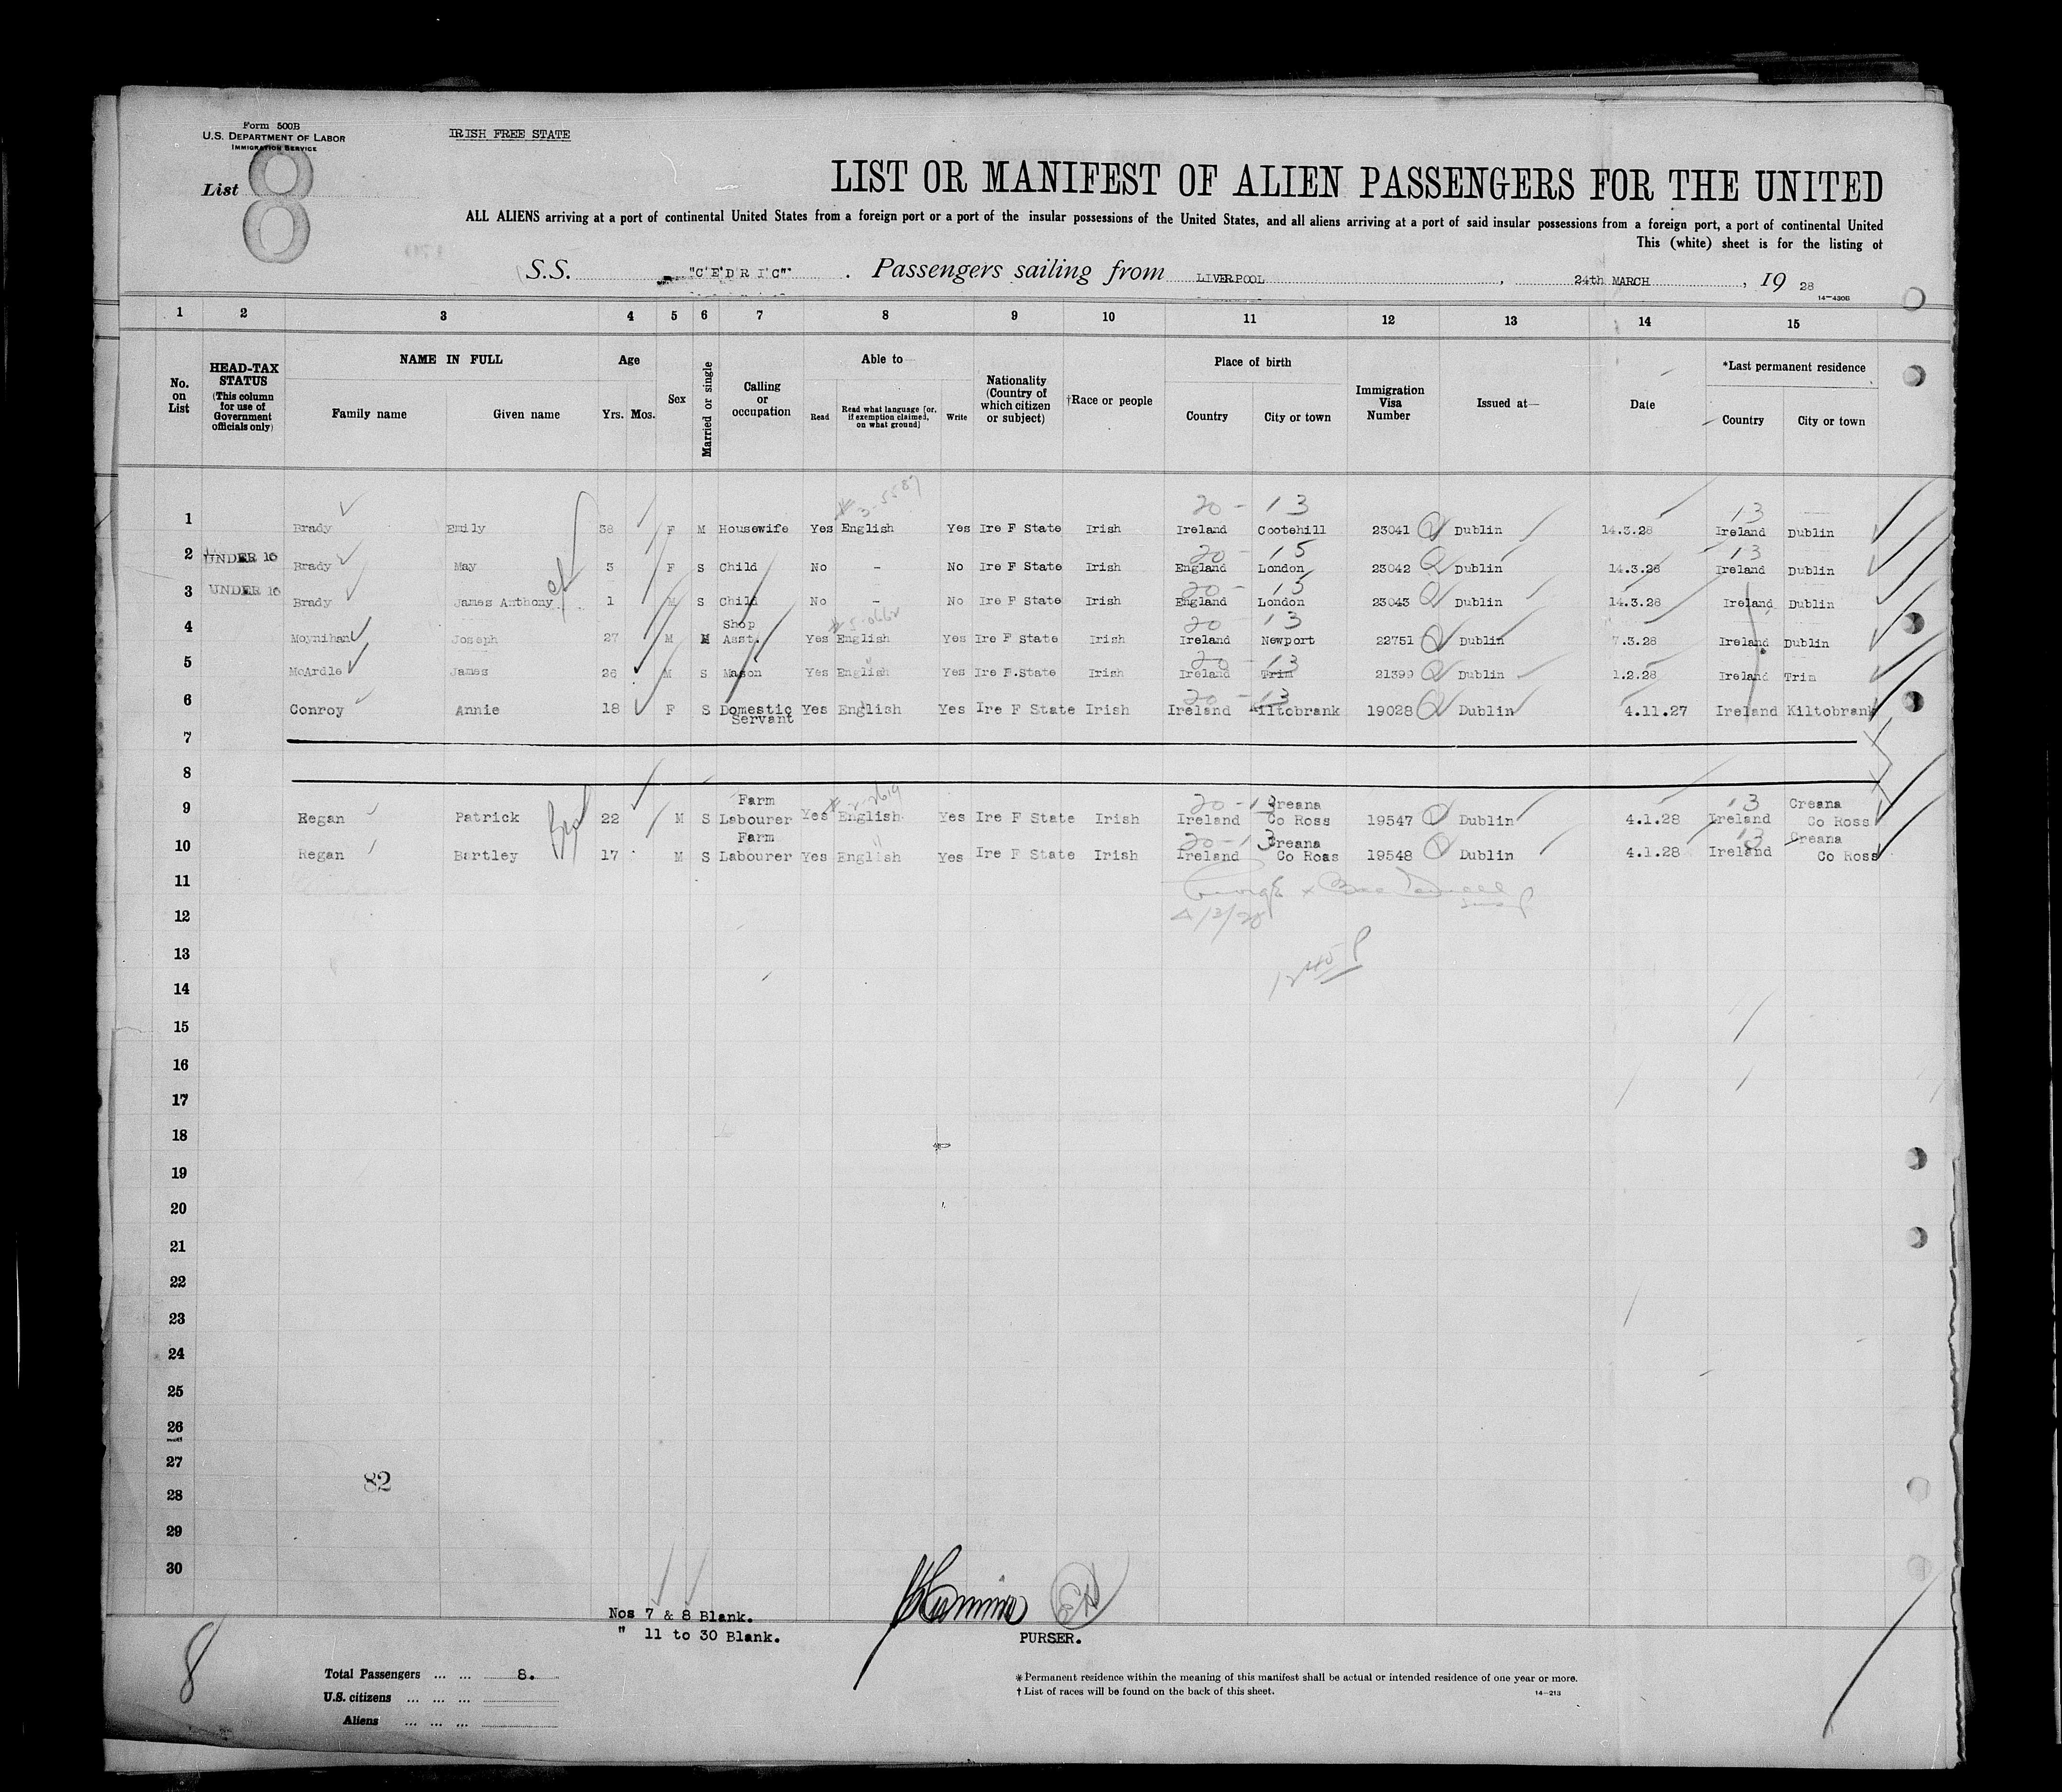 Form 500B
U.S. DEPARTMENT OF LABOR
IMMIGRATION SERVICE
IRISH FREE STATE
List 8
LIST OR MANIFEST OF ALIEN PASSENGERS FOR THE UNITED
ALL ALIENS arriving at a port of continental United States from a foreign port or a port of the insular possessions of the United States, and all aliens arriving at a port of said insular possessions from a foreign port, a port of continental United
This (white) sheet is for the listing of
S.S. "CEDRIC" . Passengers sailing from LIVERPOOL , 24th MARCH , 19 28
14—430B
1 2 3 4 5 6 7 8 9 10 11 12 13 14 15
No. on List
HEAD-TAX STATUS (This column for use of Government officials only)
NAME IN FULL
Family name Given name
Age
Yrs. Mos.
Sex
Married or single
Calling or occupation
Able to
Read Read what language [or, if exemption claimed, on what ground] Write
Nationality (Country of which citizen or subject)
†Race or people
Place of birth
Country City or town
Immigration Visa Number
Issued at—
Date
*Last permanent residence
Country City or town
3-5587 20 - 13 13
1 Brady Emily 38 F M Housewife Yes English Yes Ire F State Irish Ireland Cootehill 23041 Dublin 14.3.28 Ireland Dublin
20 - 15 13
2 UNDER 16 Brady May 3 F S Child No - No Ire F State Irish England London 23042 Dublin 14.3.28 Ireland Dublin
20 - 15
3 UNDER 16 Brady James Anthony 1 M S Child No - No Ire F State Irish England London 23043 Dublin 14.3.28 Ireland Dublin
20 - 13
4 Moynihan Joseph 27 M M Shop Asst. Yes English Yes Ire F State Irish Ireland Newport 22751 Dublin 7.3.28 Ireland Dublin
20 - 13
5 McArdle James 26 M S Mason Yes English Yes Ire F.State Irish Ireland Trim 21399 Dublin 1.2.28 Ireland Trim
20 - 13
6 Conroy Annie 18 F S Domestic Servant Yes English Yes Ire F State Irish Ireland Kiltobrank 19028 Dublin 4.11.27 Ireland Kiltobrank
7
8
20 - 13 13
9 Regan Patrick 22 M S Farm Labourer Yes English Yes Ire F State Irish Ireland Creana Co Ross 19547 Dublin 4.1.28 Ireland Creana Co Ross
20 - 13 13
10 Regan Bartley 17 M S Farm Labourer Yes English Yes Ire F State Irish Ireland Creana Co Ross 19548 Dublin 4.1.28 Ireland Creana Co Ross
11
12
13
14
15
16
17
18
19
20
21
22
23
24
25
26
27
82
28
29
30
Nos 7 & 8 Blank.
" 11 to 30 Blank.
PURSER.
8
Total Passengers ... ... 8.
U.S. citizens ... ... ...
Aliens ... ... ...
* Permanent residence within the meaning of this manifest shall be actual or intended residence of one year or more.
† List of races will be found on the back of this sheet.
14—213